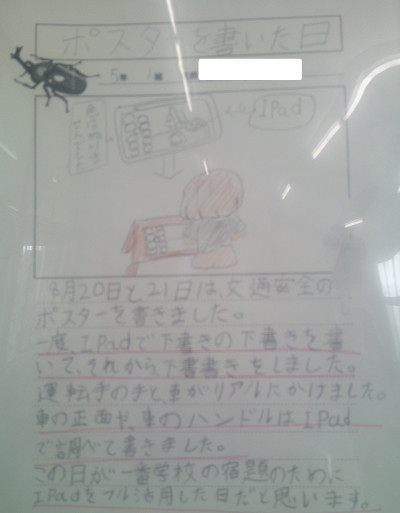 ポスターを書いた日
5年 1組
iPad
色はぬりませんでした
8月20日と21日は、交通安全の
ポスターを書きました。
一度、IPadで下書きの下書きを書
いて、それから下書書きをしました。
運転手の手と、車がリアルにかけました。
車の正面や、車のハンドルは、IPad
で調べて書きました。
この日が一番学校の宿題のために
IPadをフル活用した日だと思います。